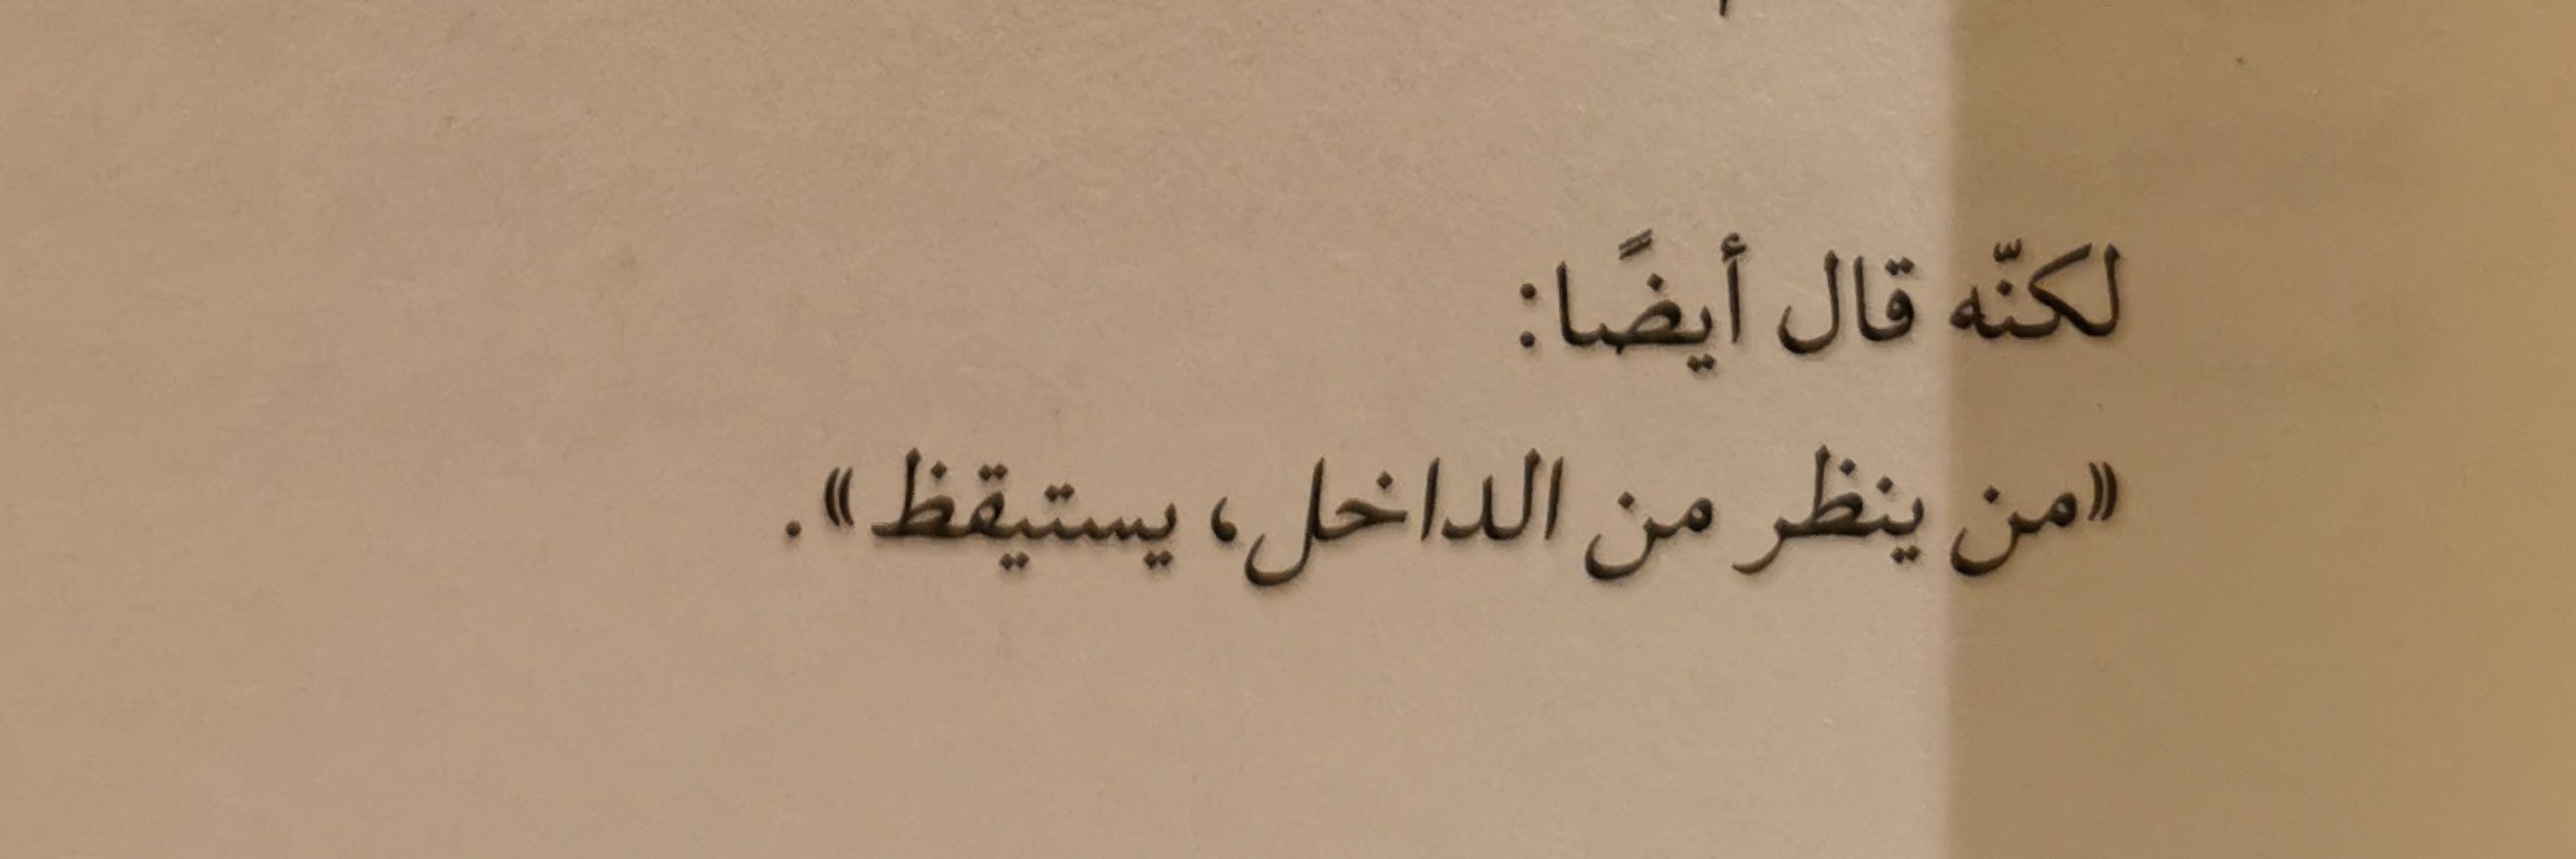 لكنّه قال أيضًا:
«من ينظر من الداخل، يستيقظ».